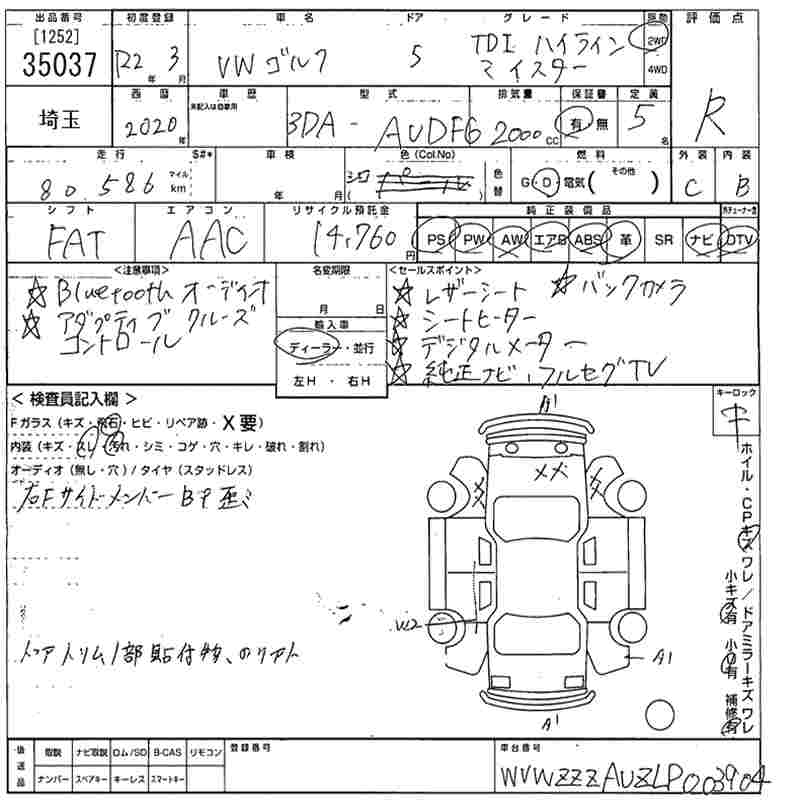 出品番号 初度登録 車名 ドア グレード 駆動 評価点
[1252]
35037 R2年 3月 VW ゴルフ 5 TDI ハイライン マイスター 2WD 4WD
R
埼玉
西暦 車歴 型式 排気量 保証書 定員
未記入は自家用
2020年 3DA - AUDFG 2000cc 有・無 5名
走行 S#* 車検 色(Col.No) 色替 燃料 外装 内装
80,586 マイル km 年 月 シロ パール G・D・電気( その他 ) C B
シフト エアコン リサイクル預託金 純正装備品
FAT AAC 14,760円 PS PW AW エアB ABS 革 SR ナビ DTV
<注意事項> 名変期限 <セールスポイント>
☆Bluetooth オーディオ
☆アダプティブ クルーズ
コントロール
月 日
輸入車
ディーラー・並行
左H ・ 右H
☆レザーシート ☆バックカメラ
☆シートヒーター
☆デジタルメーター
☆純正ナビ、フルセグTV
<検査員記入欄>
Fガラス(キズ・飛石・ヒビ・リペア跡・X要)
内装(キズ・スレ・汚れ・シミ・コゲ・穴・キレ・破れ・割れ)
オーディオ(無し・穴)/タイヤ(スタッドレス)
右Fサイドメンバー BP 歪ミ
ドアトリム1部貼付物、のりアト
キーロック
ホイル・CPキズ ワレ/ドアミラーキズ ワレ
小キズ有 小凹有 補修有
A1
XX
XX
XX
W2
A1
A1
後送品 取説 ナビ取説 ロム/SD B-CAS リモコン 登録番号 車台番号
ナンバー スペアキー キーレス スマートキー
WVWZZZAUZLP003904